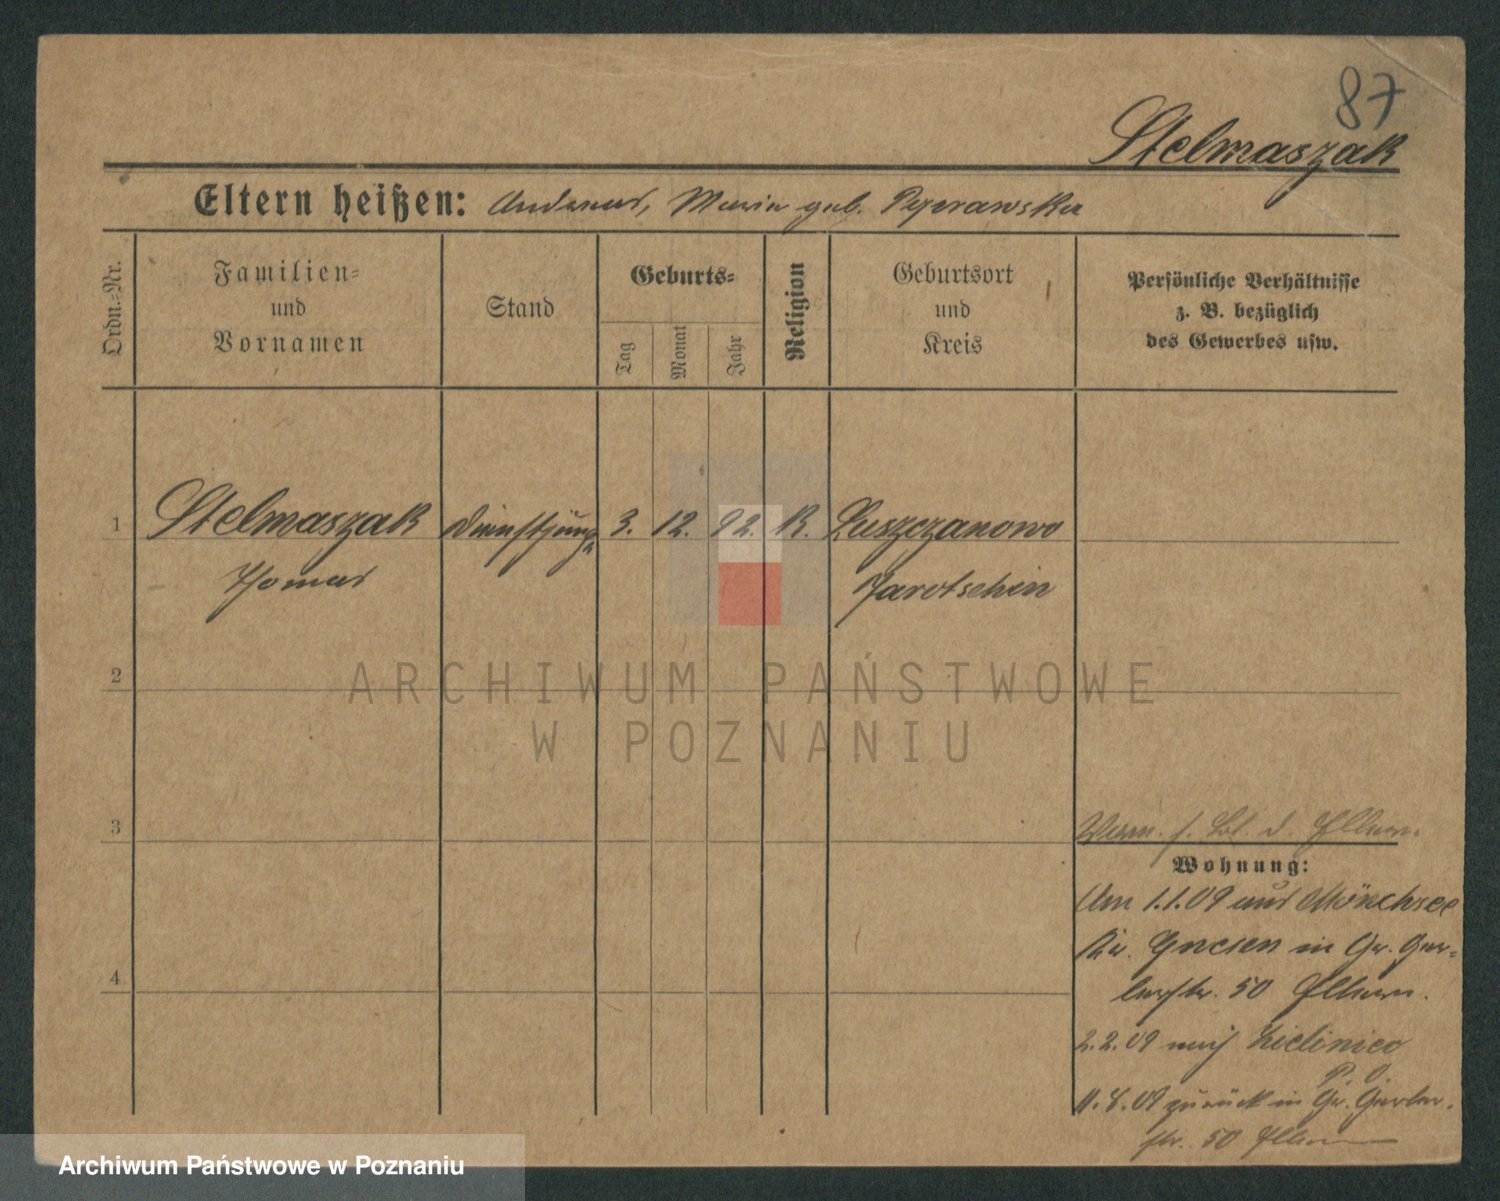 87
Stelmaszak
Eltern heißen: Andreas, Maria geb. Pyrawska
Ordn.-Nr.
Familien-
und
Vornamen
Stand
Geburts-
Tag
Monat
Jahr
Religion
Geburtsort
und
Kreis
Persönliche Verhältnisse
z. B. bezüglich
des Gewerbes usw.
1 Stelmaszak Dienstjunge 3. 12. 92. K. Luszczanowo
Thomas Jarotschin
2
3
4
s. Bl. d. Eltern.
Wohnung:
Am 1.1.09 aus Mönchsee
Kr. Gnesen in Gr. Ger-
berstr. 50 Eltern.
2.2.09 nach Zieliniec
P. O.
11.8.09 zurück in Gr. Gerber-
str. 50 Eltern
ARCHIWUM PAŃSTWOWE
W POZNANIU
Archiwum Państwowe w Poznaniu